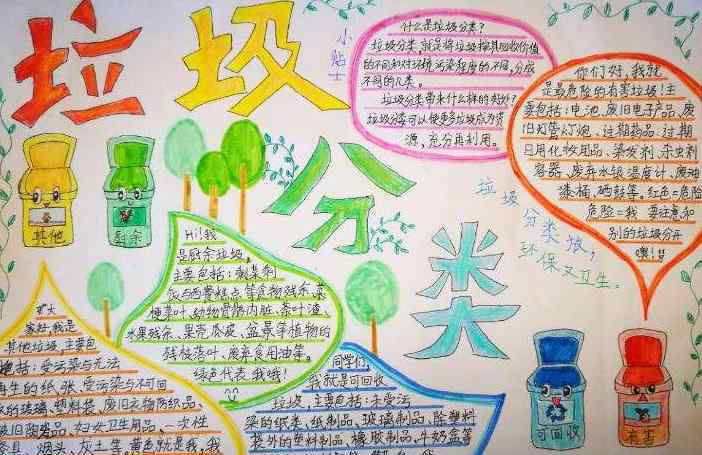 垃圾
分
类
小贴士
什么是垃圾分类?
垃圾分类,就是将垃圾按其回收价值
的不同和对环境污染程度的不同,分成
不同的几类。
垃圾分类带来什么样的好处?
垃圾分类可以使更多垃圾成为资
源,充分再利用。
你们好,我就
是最危险的有害垃圾!主
要包括:电池、废旧电子产品、废
旧灯管灯泡、过期药品、过期
日用化妆用品、染发剂、杀虫剂
容器、废弃水银温度计、废油
漆桶、硒鼓等。红色=危险
危险=我 要注意和
别的垃圾分开
噢!!
垃圾
分类娘,
环保又卫生。
其他
厨余
可回收
有害
Hi!我
是厨余垃圾,
主要包括:剩菜剩
饭与西餐糕点等食物残余、菜
梗菜叶、动物骨骼内脏、茶叶渣、
水果残余、果壳瓜皮、盆景等植物的
残枝落叶、废弃食用油等。
绿色代表我哦!
家好,我是
其他垃圾,主要包
括:受污染与无法
再生的纸张、受污染与不可回
的玻璃、塑料袋、废旧衣物防织品、
废旧陶瓷品、妇女卫生用品、一次性
餐具、烟头、灰土等,黄色就是我,我
同学们,
我就是可回收
垃圾,主要包括:未受污
染的纸类、纸制品、玻璃制品、除塑料
袋外的塑料制品、橡胶制品、牛奶盒等